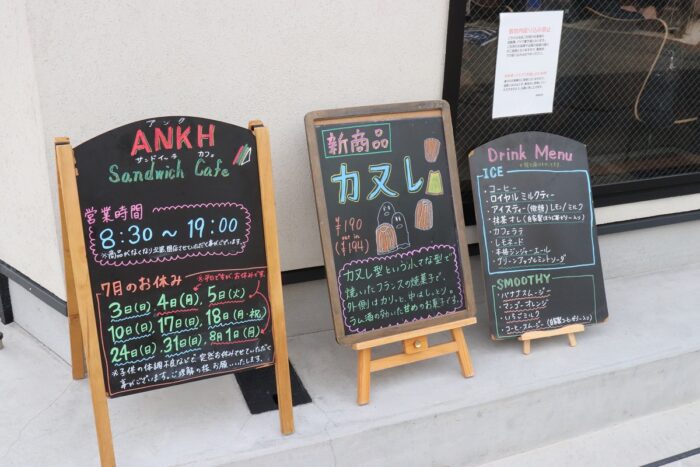 アンク
ANKH
サンドイッチ カフェ
Sandwich Cafe
営業時間
8:30～19:00
※商品がなくなり次第、閉店させていただく事がございます。
7月のお休み
3日(日) 4日(月)、5日(火)
10日(日) 17日(日)、18日(月・祝)
24日(日) 31日(日)、8月1日(月)
※子供の体調不良などで、突然お休みさせていただく
事がございます。ご理解の程お願いいたします。
新商品
カヌレ
¥190
(¥194)
カヌレ型という小さな型で
焼いたフランスの焼菓子で、
外側はカリッと、中はしっとり。
ラム酒の効いた甘めのお菓子です。
Drink Menu
ICE
・コーヒー
・ロイヤルミルクティー
・アイスティー(微糖)レモン/ミルク
・カフェラテ
・レモネード
・本格ジンジャーエール
・グリーンアップルミントソーダ
SMOOTHY
・バナナスムージー
・マンゴーオレンジ
・いちごミルク
・コーヒースムージー(自家製コーヒーゼリー入り)